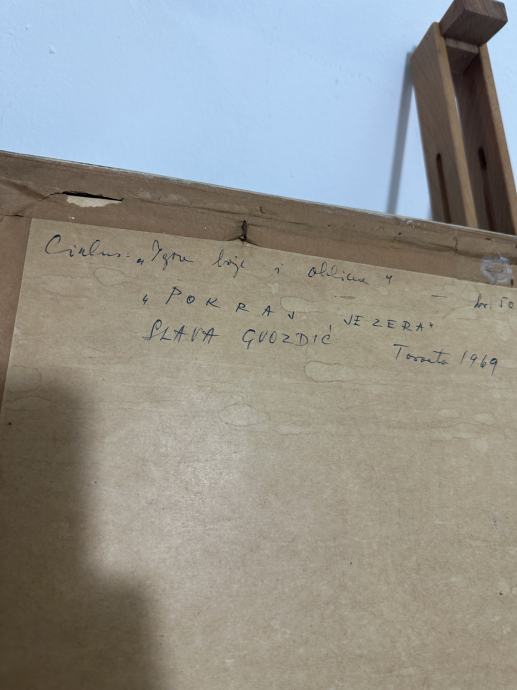 Ciklus: „Igra boje i oblika" - br. 50
„POKRAJ JEZERA"
SLAVA GVOZDIĆ Toronto 1969